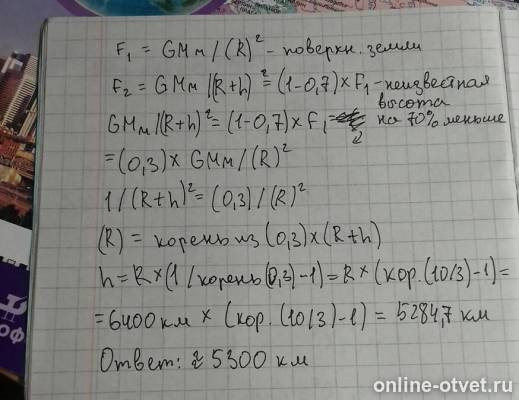 F₁ = GMм/(R)² - поверхн. земли
F₂ = GMм/(R+h)² = (1-0,7)×F₁ - неизвестная
высота
на 70% меньше
GMм/(R+h)² = (1-0,7)×F₁ =
= (0,3) × GMм/(R)²
1/(R+h)² = (0,3)/(R)²
(R) = корень из (0,3)×(R+h)
h = R×(1/корень(0,3)-1) = R×(кор.(10/3)-1) =
= 6400 км × (кор.(10/3)-1) = 5284,7 км
Ответ: ≈ 5300 км
ОФ
online-otvet.ru